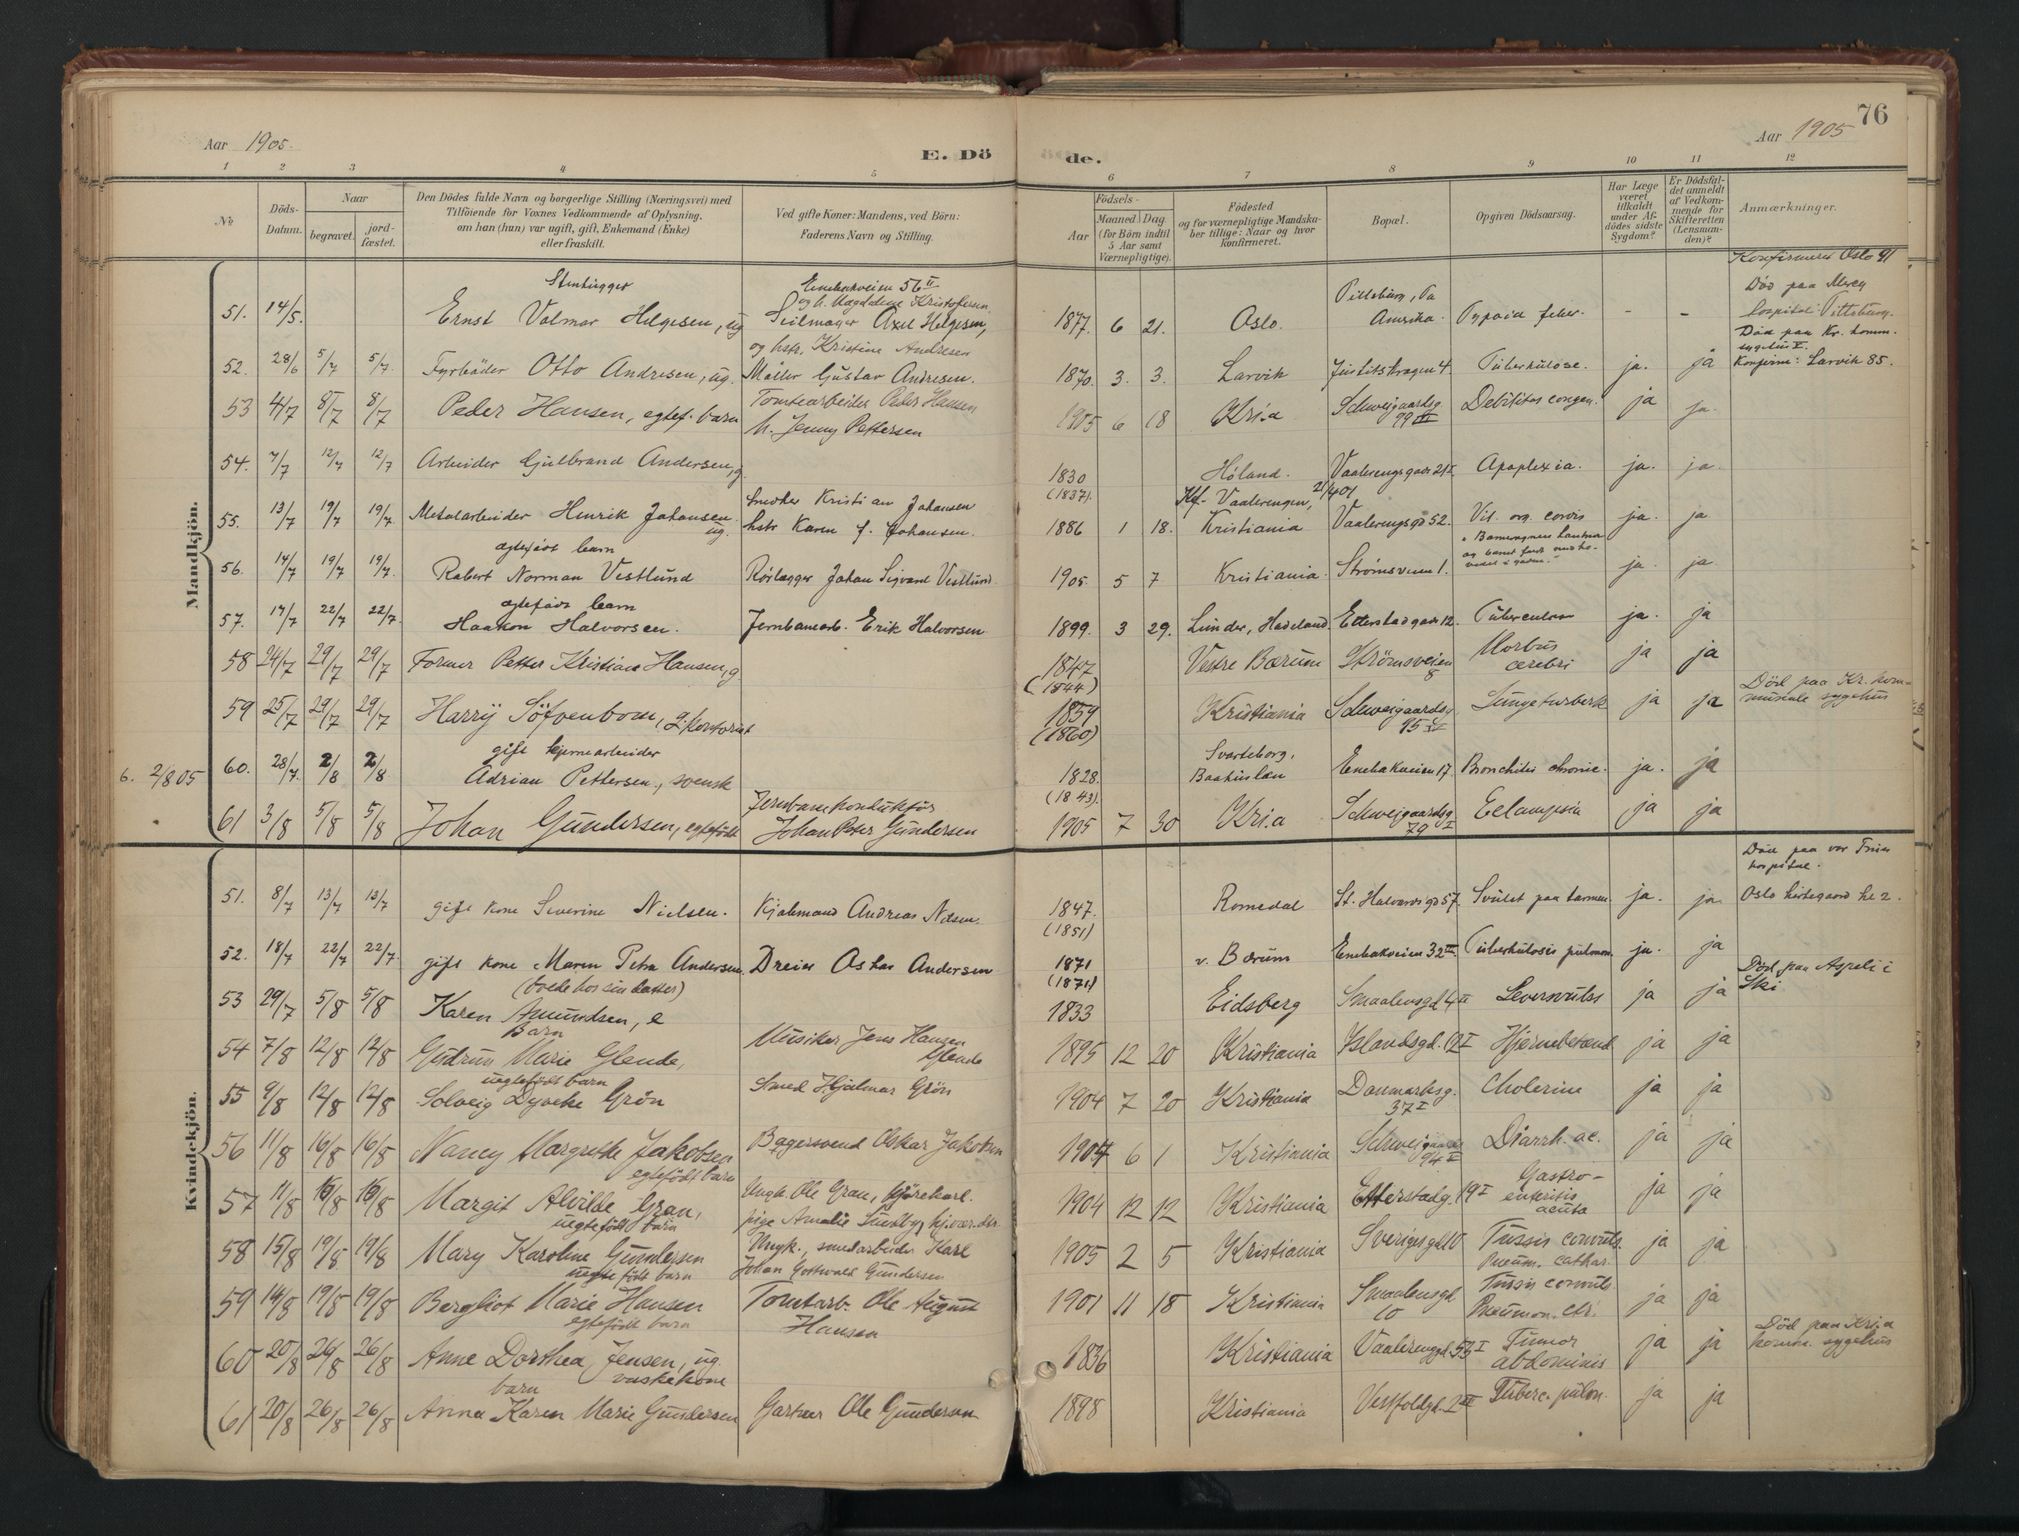 76
Aar 1905
Aar 1905
E. Dö
de.
1 2 3 4 5 6 7 8 9 10 11 12
No
Döds-
Datum.
Naar
begravet.
jord-
fæstet.
Den Dödes fulde Navn og borgerlige Stilling (Næringsvei) med
Tilföiende for Voxnes Vedkommende af Oplysning,
om han (hun) var ugift, gift, Enkemand (Enke)
eller fraskilt.
Ved gifte Koner: Mandens, ved Börn:
Faderens Navn og Stilling.
Födsels-
Aar
Maaned Dag
(for Börn indtil
5 Aar samt
Værnepligtige).
Födested
og for værnepligtige Mandska-
ber tillige: Naar og hvor
konfirmeret.
Bopæl.
Opgiven Dödsaarsag.
Har Læge
været
tilkaldt
under Af-
dödes sidste
Sygdom?
Er Dödsfal-
det anmeldt
af Vedkom-
mende for
Skifteretten
(Lensman-
den)?
Anmærkninger.
Mandkjön.
Stenhugger Enebakveien 56 II Konfirmeret Oslo 91
og h. Magdalene Kristofersen Pittsburg, Pa Död paa Mercy
51. 14/5. Ernst Valmar Helgesen, ug Seilmager Axel Helgesen, 1877. 6 21. Oslo. Amerika. - - hospital Pittsburg.
og hstr. Kristine Andresen Död paa Kr. komm. sygehus
52. 28/6 5/7 5/7. Fyrböder Otto Andresen, ug. Möller Gustav Andresen. 1870. 3. 3. Larvik 4. Tüberkulose. ja. ja Konfirm: Larvik 85.
53 4/7 8/7 8/7 Peder Hansen, egtef. barn Tomtearbeider Peder Hansen 1905 6 18 Kria Schweigaardsg 99 III Debilitas congen. ja ja.
h. Jenny Pettersen
54. 7/7 12/7 12/7 Arbeider Gulbrand Andersen, g 1830 Höland. Vaalerengsgaden 21 I Apoplexia. ja. ja.
(1837). Kf. Vaalerengen, 21/4 01
55. 13/7 19/7 19/7 Metalarbeider Henrik Johansen ug. Snedker Kristian Johansen 1886 1 18. Kristiania Vaalerengsgd 52. Vit. org. cordis ja. ja
hstr Karen f. Johansen.
egtefödt barn
56. 14/7 19/7 19/7. Robert Norman Vestlund Rörlægger Johan Sigvard Vestlund 1905. 5 7 Kristiania. Strömsveien 1. ja. ja.
egtefödt barn
57. 17/7 22/7 22/7. Haakon Halvorsen. Jernbanearb. Erik Halvorsen 1899. 3 29. Lunder, Hadeland. Etterstadgaden 12. Tuberculose ja. ja
58 24/7 29/7 29/7 Former Petter Kristian Hansen, g 1847 Vestre Bærum Strömsveien 8 Morbus cerebri ja ja
(1844)
59 25/7 29/7 29/7 Harry Söfvenbom, g, kontorist 1859 Kristiania Schweigaardsg 95 Lungetuberk ja ja Död paa Kr. kom-
munale sygehus
(1860)
gift hjernearbeider
6. 2/8 05 60. 28/7. 2/8 2/8 Adrian Pettersen, svensk 1828. Svarteborg, Baahuslen Enebakveien 17 Bronchitis chronic. ja. ja
(1843).
61 3/8 5/8 5/8 Johan Gundersen, egtefödt Jernbanekonduktör 1905 7 30 Kria Schweigaardsg 79 I Eclampsia ja ja
Johan Peter Gundersen
Kvindekjön.
Död paa vor Frue
hospital.
51. 8/7 13/7 13/7 gift kone Severine Nielsen. Kjölemand Andreas Nilsen. 1847. Romedal St. Halvards gd 57. Svulst paa tarmen ja. ja. Oslo
(1851)
52. 18/7 22/7 22/7. gift kone Maren Petra Andersen Dreier Oskar Andersen 1871 v. Bærum Enebakveien 32 III Tüberkulosis pulmon. ja. ja
(boede hos sin datter) (1871) Död paa Aspeli i
53 29/7 5/8 5/8 Karen Amundsen, e 1833 Eidsberg Smaalensgd 4 II Leversvulst ja ja Ski
Barn
54 7/8 12/8 12/8 Gudrun Marie Glende, Musiker Jens Hansen Glende 1895 12 20 Kristiania Islandsgd. 12 I Hjernebetænd ja ja
uegtefödt barn
55 9/8 12/8 12/8 Solveig Dyveke Grön Smed Hjalmar Grön 1904 7 20 Kristiania Danmarksg. 37 I Cholerine ja ja
56 11/8 16/8 16/8 Nancy Margrethe Jakobsen Bagersvend Oskar Jakobsen 1904 6 1 Kristiania Schweigaards 94 II Diarrh. ac. ja ja
egtefödt barn
57 11/8 16/8 16/8 Margit Alvilde Gran, Ungk. Ole Gran, kjörekarl. 1904 12 12 Kristiania Etterstadg. 19 I Gastro-
enteritis
acuta ja ja
uegtefödt barn pige Amalie Sundby,
58 15/8 19/8 19/8 Mary Karoline Gundersen Ungk., smedarbeider Karl 1905 2 5 Kristiania Sverigesgd 10 Tussis convuls. ja ja
uegtefödt barn Johan Gottwald Gundersen Pneum. cathar.
59 14/8 19/8 19/8 Bergliot Marie Hansen Tomtarb. Ole August Hansen 1901 11 18 Kristiania Smaalensgd. 10 Tussis convuls. Pneumon. chr. ja ja
egtefödt barn
60 20/8 26/8 26/8 Anne Dorthea Jensen, ug. vaskekone 1836 Kristiania Vaalerengd. 53 I Tumor abdominis ja ja Död paa Kria
komm. sygehus
barn
61 20/8 26/8 26/8 Anna Karen Marie Gundersen Gartner Ole Gundersen 1898 Kristiania Vestfoldgd. 2 III Tuberc. pulm. ja ja